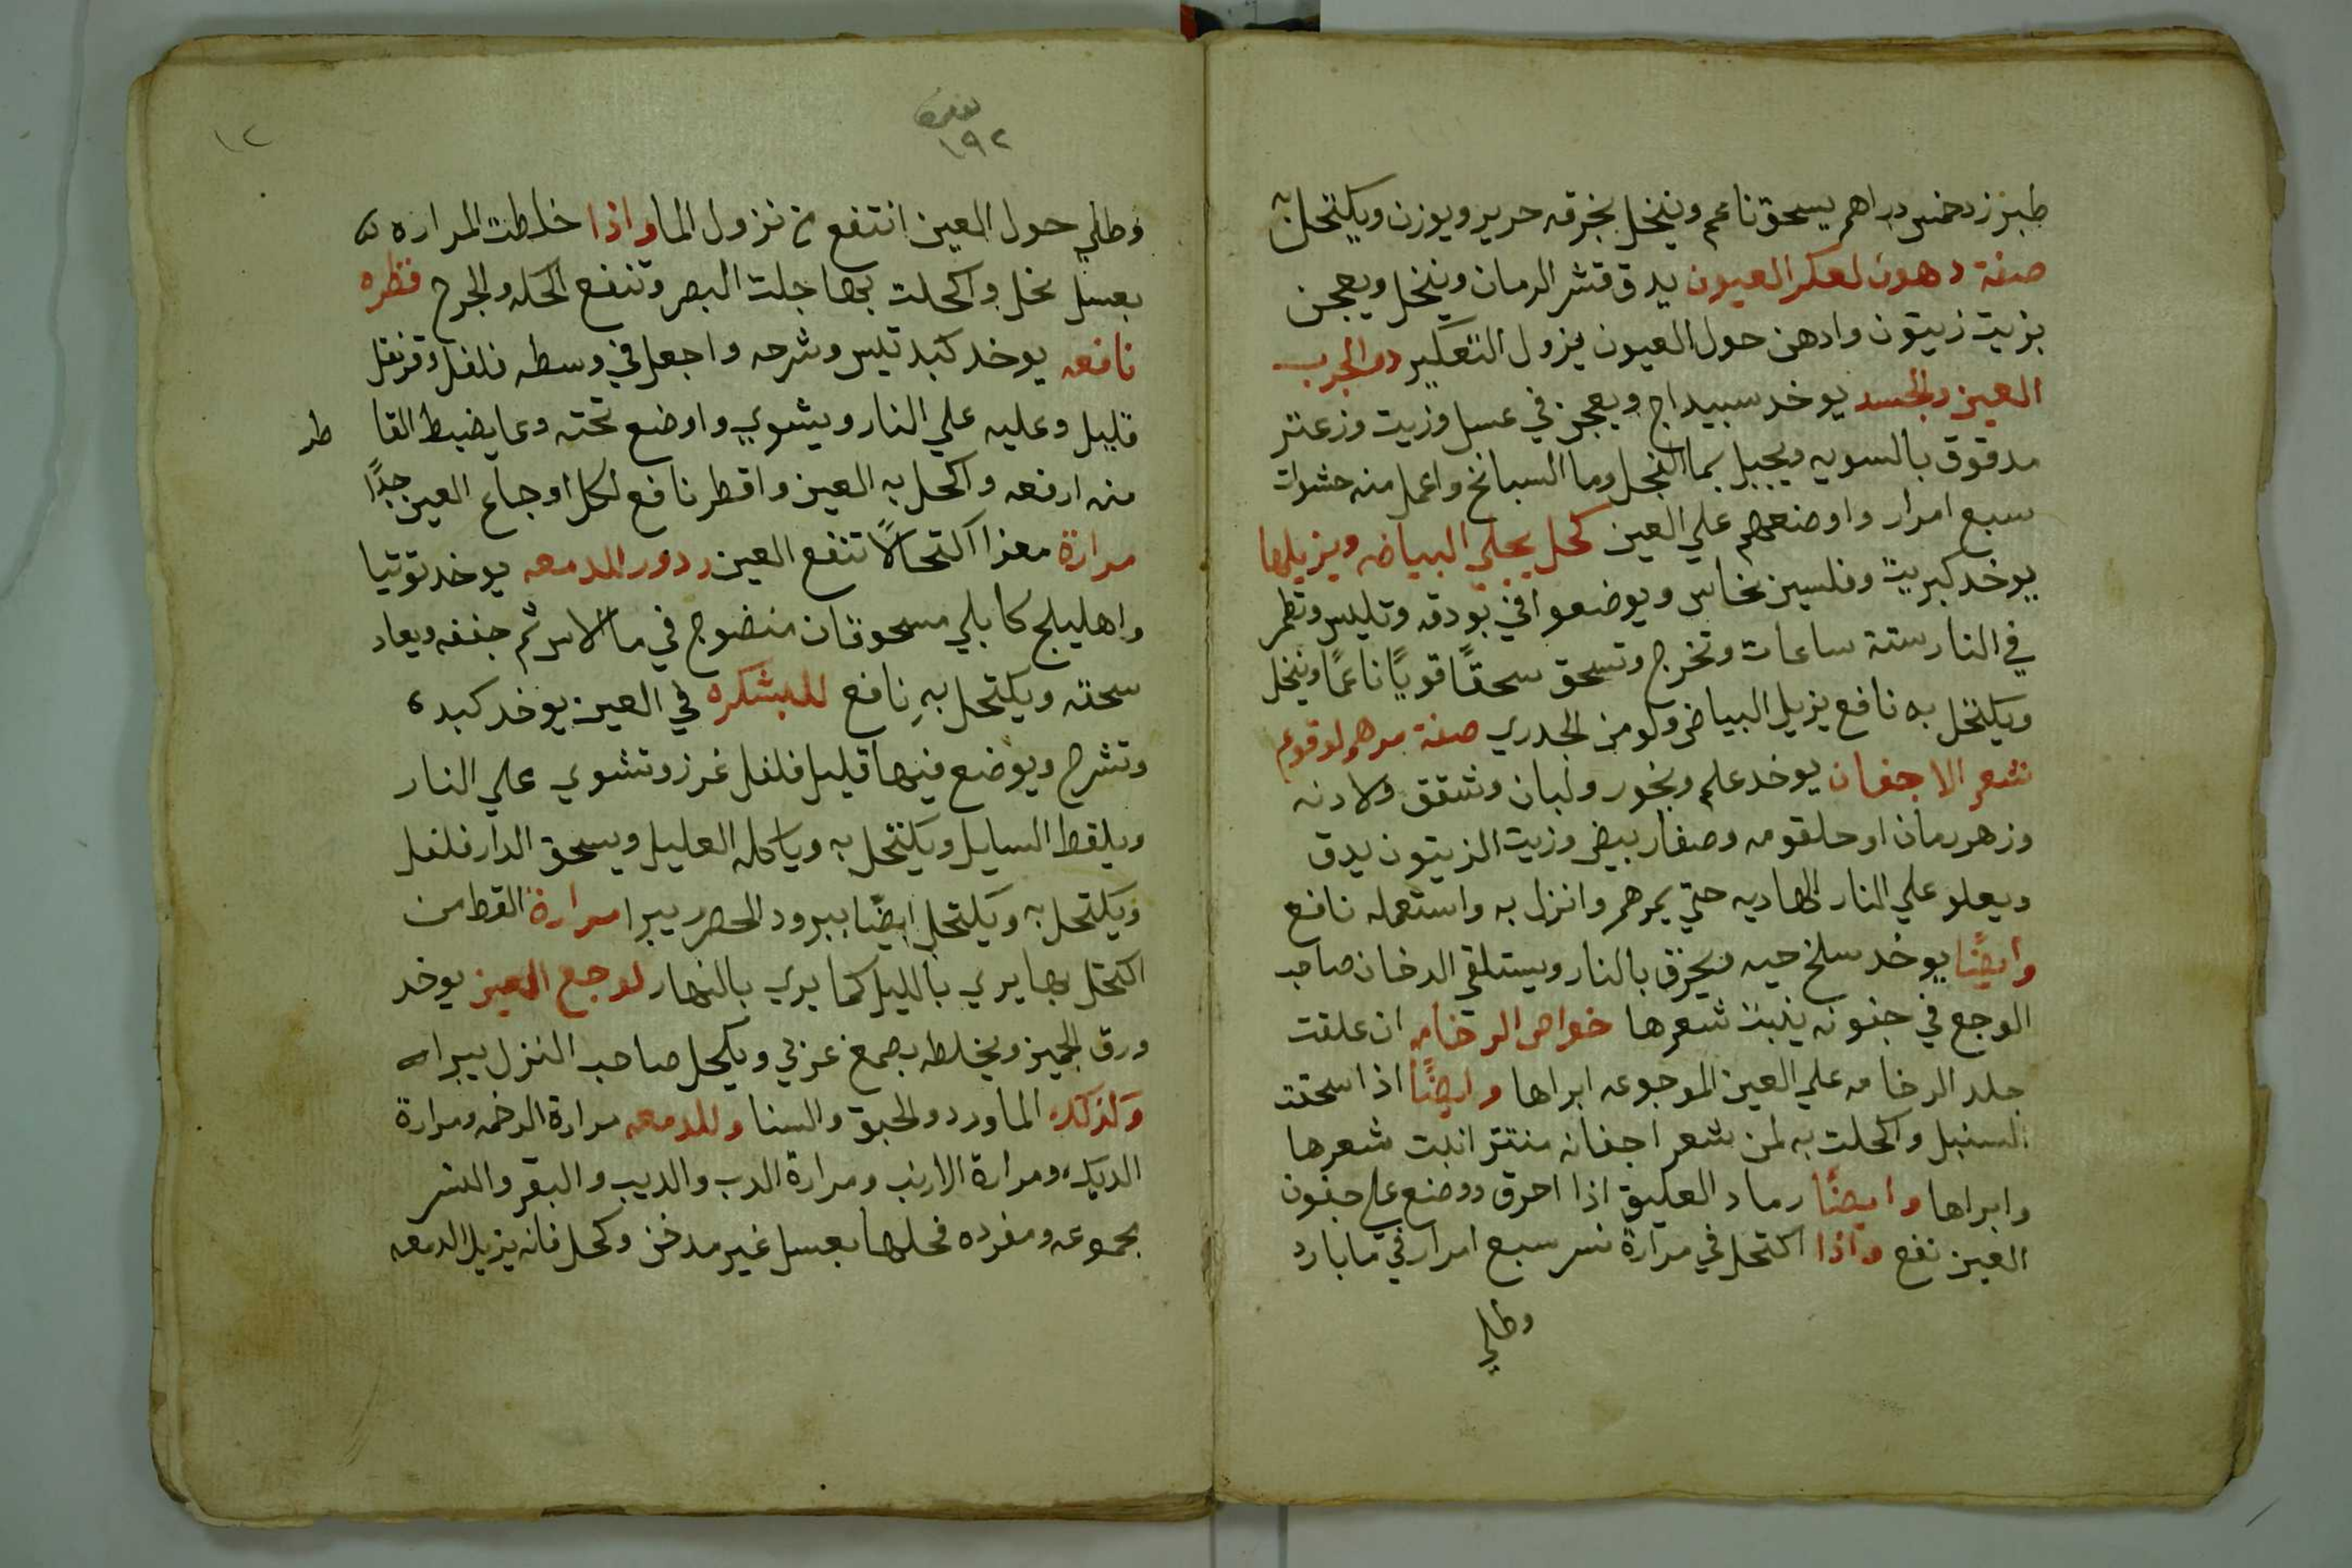 طبرزد خمس دراهم يسحق ناعم وينخل بخرقه حرير ويوزن ويكتحل به
صفة دهون لعكر العيون يدق قشر الرمان وينخل ويعجن
بزيت زيتون وادهن حول العيون يزول التعكير دو الجرب
العين والجسد يوخد سبيداج ويعجن في عسل وزيت وزعتر
مدقوق بالسويه ويجبل بما الفجل وما السبانخ واعمل منه
سبع امرار واوضعهم علي العين كحل يجلي البياضه ويزيلها
يوخد كبريت وفلسين نحاس ويوضعوا في بودقه وتليس وتطمر
في النار ستة ساعات وتخرج وتسحق سحقًا قويًا ناعمًا وينخل
ويكتحل به نافع يزيل البياض ولو من الجدري صفة مرهم لوقوع
شعر الاجفان يوخد علم وبخور ولبان وشقق ولادنه
وزهر رمان او حلقومه وصفار بيض وزيت الزيتون يدق
ويعلو علي النار الهاديه حتي يمرهم وانزل به واستعمله نافع
وايضًا يوخد سلخ حيه ويحرق بالنار ويستلقي الدخان صاحب
الوجع في جفونه ينبت شعرها خواص الرخامه ان علقت
جلد الرخامه علي العين الموجوعه ابراها وايضًا اذا سحقت
السنبل واكحلت به لمن شعر اجفانه منتتر انبت شعرها
وابراها وايضًا رماد العكيق اذا احرق ووضع علي جفون
العين نفع واذا اكتحل في مرارة نسر سبع امرار في ما بارد
وطلي
١٩٢
١٢
وطلي حول العين انتفع من نزول الما واذا خلطت المراره
بعسل نحل واكحلت بها جلت البصر وتنفع الحكه والجرح قطره
نافعه يوخد كبد تيس وشرحه واجعل في وسطه فلفل وقرنفل
قليل وعليه علي النار ويشوي واوضع تحته وعا يضبط القا طر
منه ارفعه واكحل به العين واقطر نافع لكل اوجاع العين جدًا
مرارة معزا اكتحالاً تنفع العين ردور الدمعه يوخد توتيا
واهليلج كابلي مسحوقان منضوج في ما الاس ثم جففه ويعاد
سحقه ويكتحل به نافع للبشكره في العين يوخد كبده
وتشرح ويوضع فيها قليل فلفل غرز وتشوي علي النار
ويلقط السايل ويكتحل به وياكله العليل ويسحق الدار فلفل
ويكتحل به ويكتحل ايضًا ببرود الحصر يبرا مرارة القط من
اكتحل بها يري بالليل كما يري بالنهار لوجع العين يوخد
ورق الجميز ويخلطه بصمغ عربي ويكحل صاحب النزل يبرا
وكذلك الماورد والحبق والسنا وللدمعه مرارة الرخمه ومرارة
الديك ومرارة الارنب ومرارة الدب والديب والبقر والنسر
مجموعه ومفرده فحلها بعسل غير مدخن وكحل فانه يزيل الدمعه